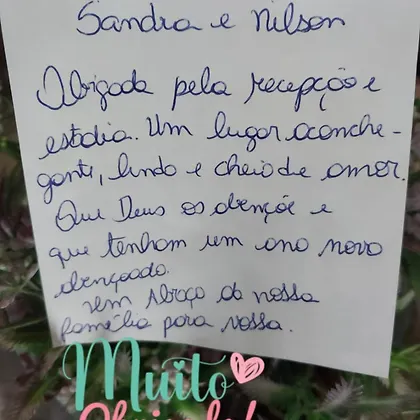 Sandra e Nilson
Obrigada pela recepção e
estadia. Um lugar aconche-
gante, lindo e cheio de amor.
Que Deus os abençõe e
que tenham um ano novo
abençoado.
Um Abraço da nossa
família para vossa.
Muito
Obrigada!